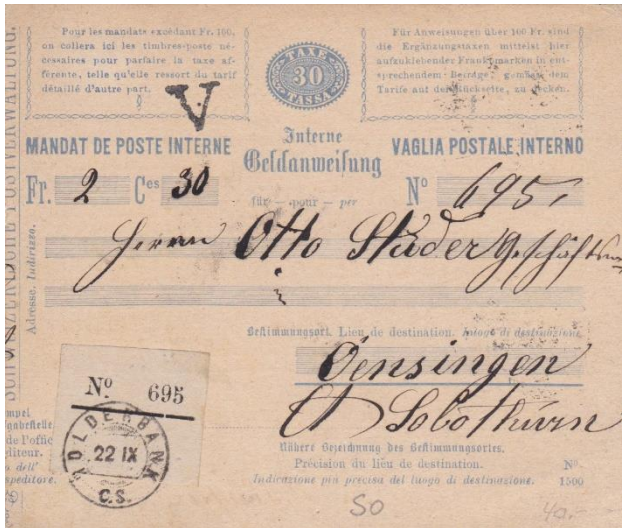 Pour les mandats excédant Fr. 100.
on collera ici les timbres-poste né-
cessaires pour parfaire la taxe af-
férente, telle qu'elle ressort du tarif
détaillé d'autre part.
TAXE
30
TASSA
Für Anweisungen über 100 Fr. sind
die Ergänzungstaxen mittelst hier
aufzuklebender Frankomarken in ent-
sprechendem Betrage, gemäss dem
Tarife auf der Rückseite, zu decken.
V
MANDAT DE POSTE INTERNE
Interne
Geldanweisung
VAGLIA POSTALE INTERNO
Fr. 2 Ces 30
für — pour — per
No 695
Adresse. Indirizzo.
Herrn Otto Studer
Bestimmungsort. Lieu de destination. luogo di destinazione
Oensingen
Ct Solothurn
No 695
HOLDERBANK
22 IX
C.S.
Nähere Bezeichnung des Bestimmungsortes.
Précision du lieu de destination.
Indicazione più precisa del luogo di destinazione.
No.
1500
SO
40.-